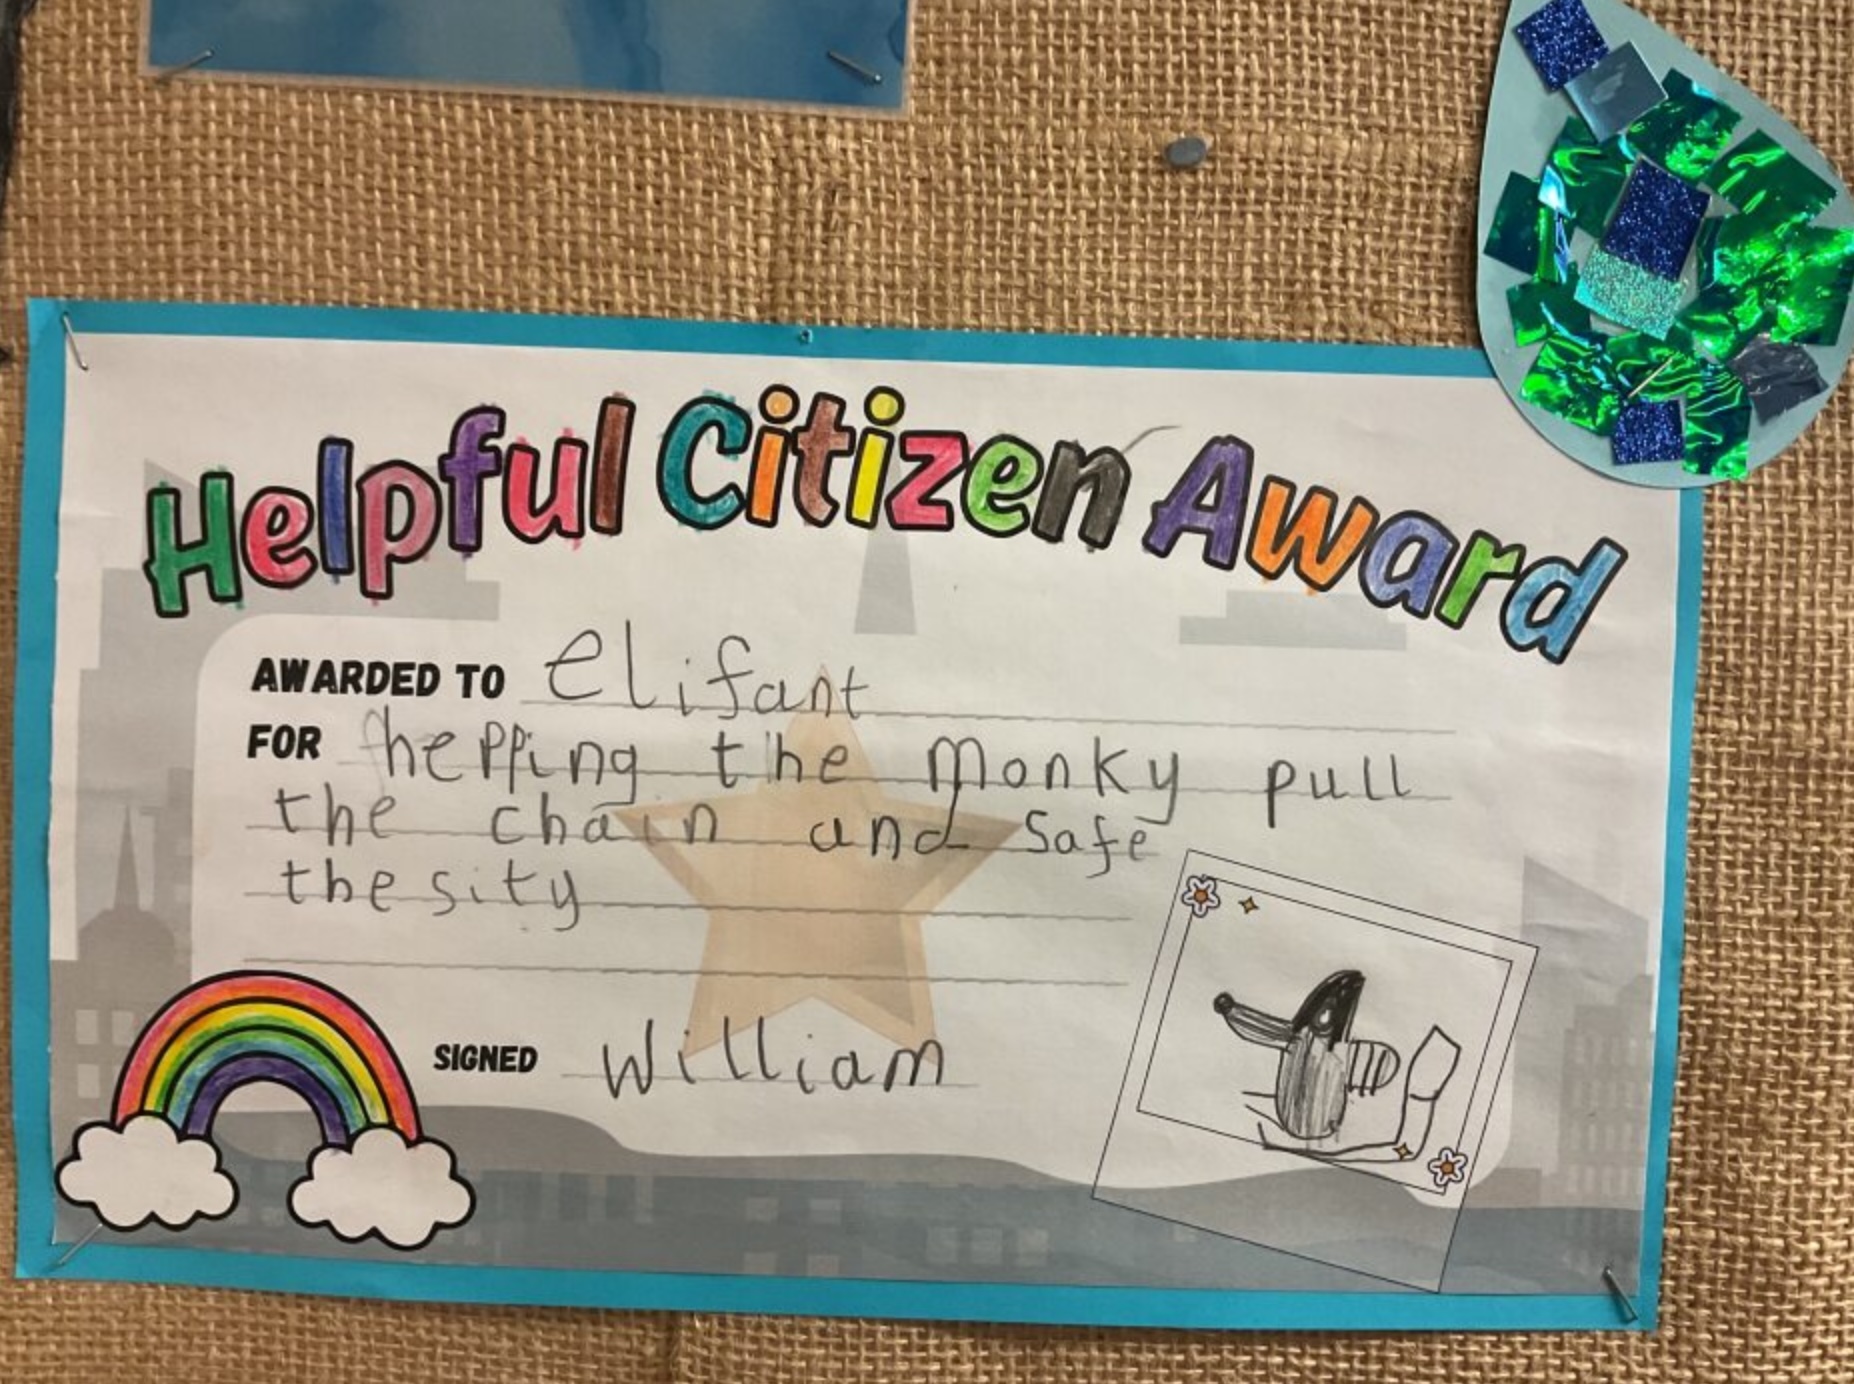 Helpful Citizen Award
AWARDED TO elifant
FOR hepping the monky pull
the chain and safe
the sity
SIGNED William